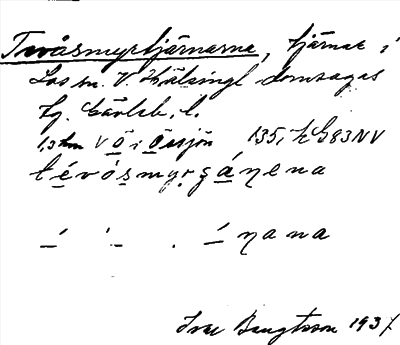 Tvåsmyrtjärnarna, tjärnar i
Los sn. V. Hälsingl domsagas
tg. Gävleb. l.
1,3 km V Ö i Össjön 135, k G83NV
tévósmyrgáṇena
– ́ ̀ – . – ́ ṇana
Ivar Bengtsson 193